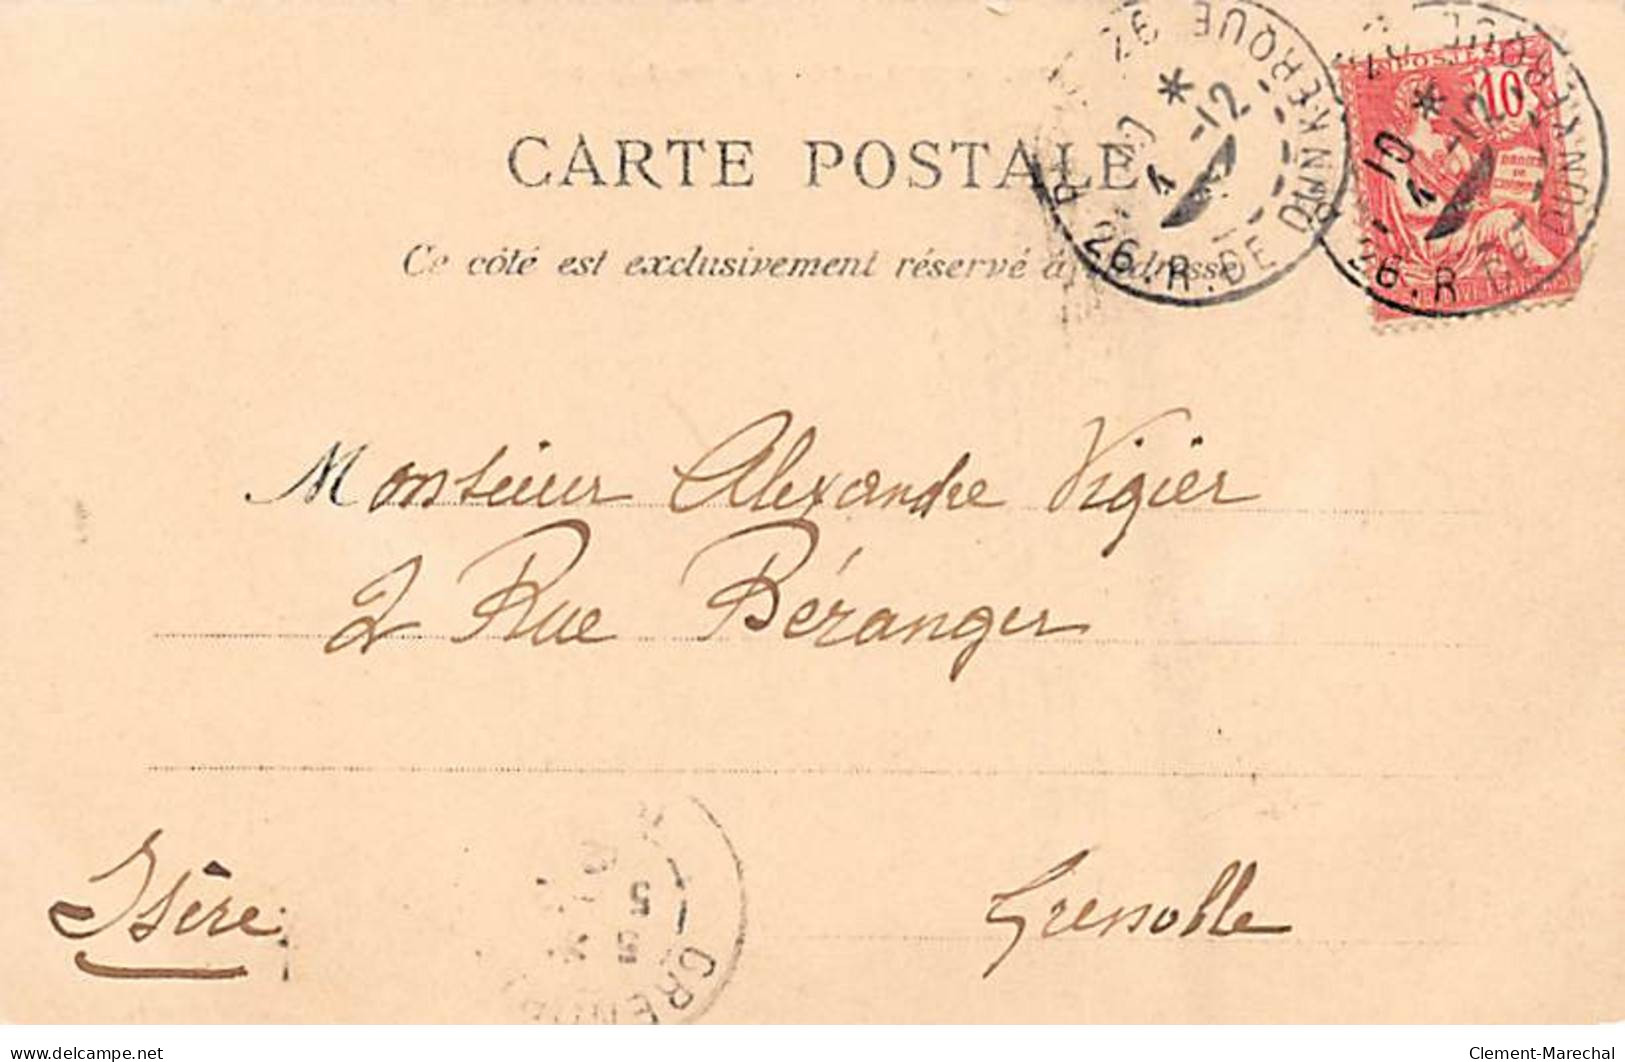 CARTE POSTALE
Ce côté est exclusivement réservé à
26. R. DE DUNKERQUE
10 *
4 -12
POSTES
10
DROITS
DE
26. R. DE DUNKERQUE
10 *
4 -12
Monsieur Alexandre Vigier
2 Rue Béranger
Isère
Grenoble
5
GRENOB
delcampe.net
Clement-Marechal